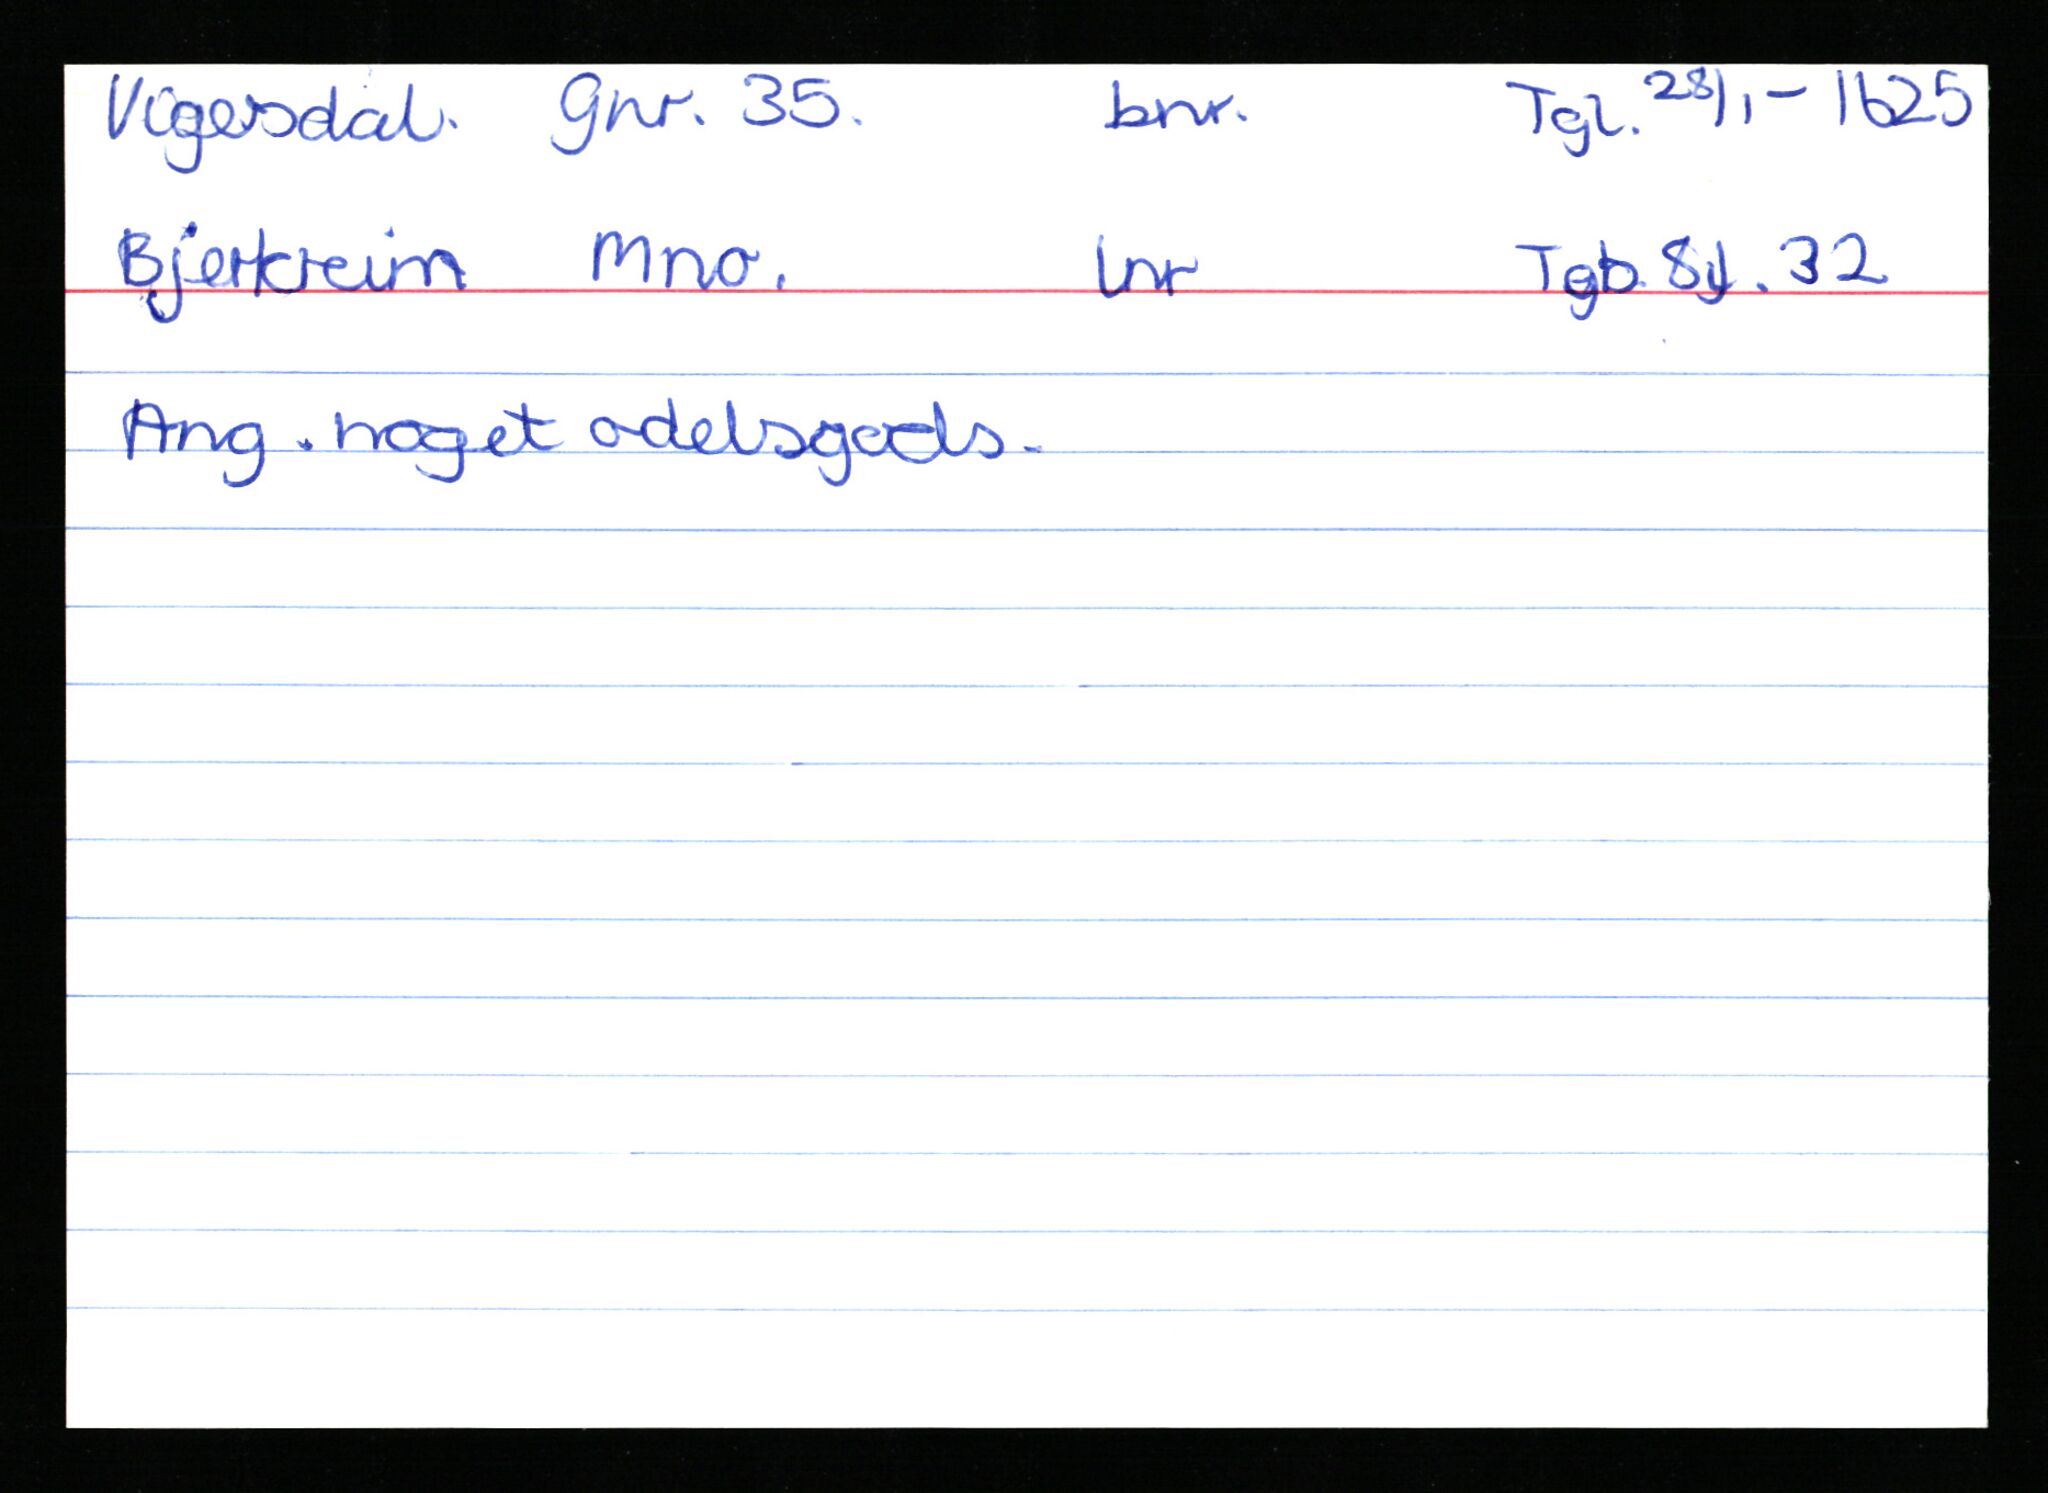 Vigesdal. Gnr. 35. bnr. Tgl. 28/1 - 1625
Bjerkreim Mno. lnr Tgb. S.f. 32
Ang. noget odelsgods.